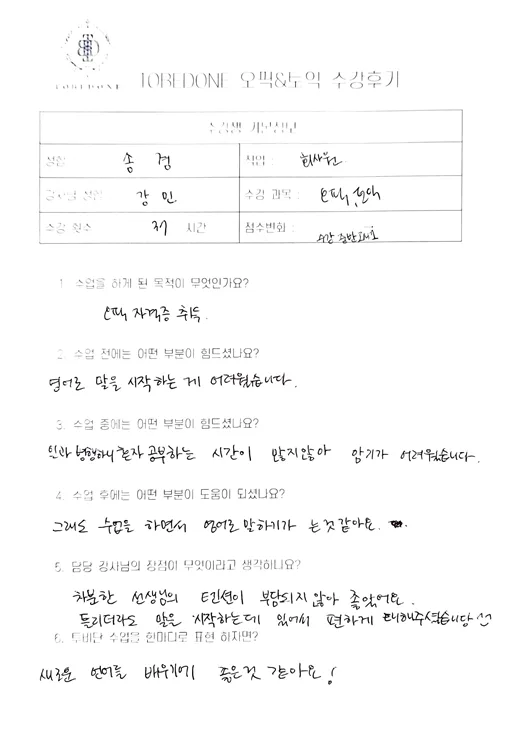 TOBEDONE
TOBEDONE 오픽&토익 수강후기
수강생 기본정보
성함 송 경 직업 : 회사원
강사님 성함 강 민 수강 과목 : 오픽, 토익
수강 횟수 시간 점수변화 :
1. 수업을 하게 된 목적이 무엇인가요?
오픽 자격증 취득.
2. 수업 전에는 어떤 부분이 힘드셨나요?
영어로 말을 시작하는 게 어려웠습니다.
3. 수업 중에는 어떤 부분이 힘드셨나요?
일과 병행하니 혼자 공부하는 시간이 많지않아 암기가 어려웠습니다.
4. 수업 후에는 어떤 부분이 도움이 되셨나요?
그래도 수업을 하면서 영어로 말하기가 는것같아요.
5. 담당 강사님의 장점이 무엇이라고 생각하나요?
차분한 선생님의 텐션이 부담되지않아 좋았어요.
틀리더라도 말을 시작하는데 있어서 편하게
6. 투비던 수업을 한마디로 표현 하자면?
새로운 언어를 배우기에 좋은것 같아요!